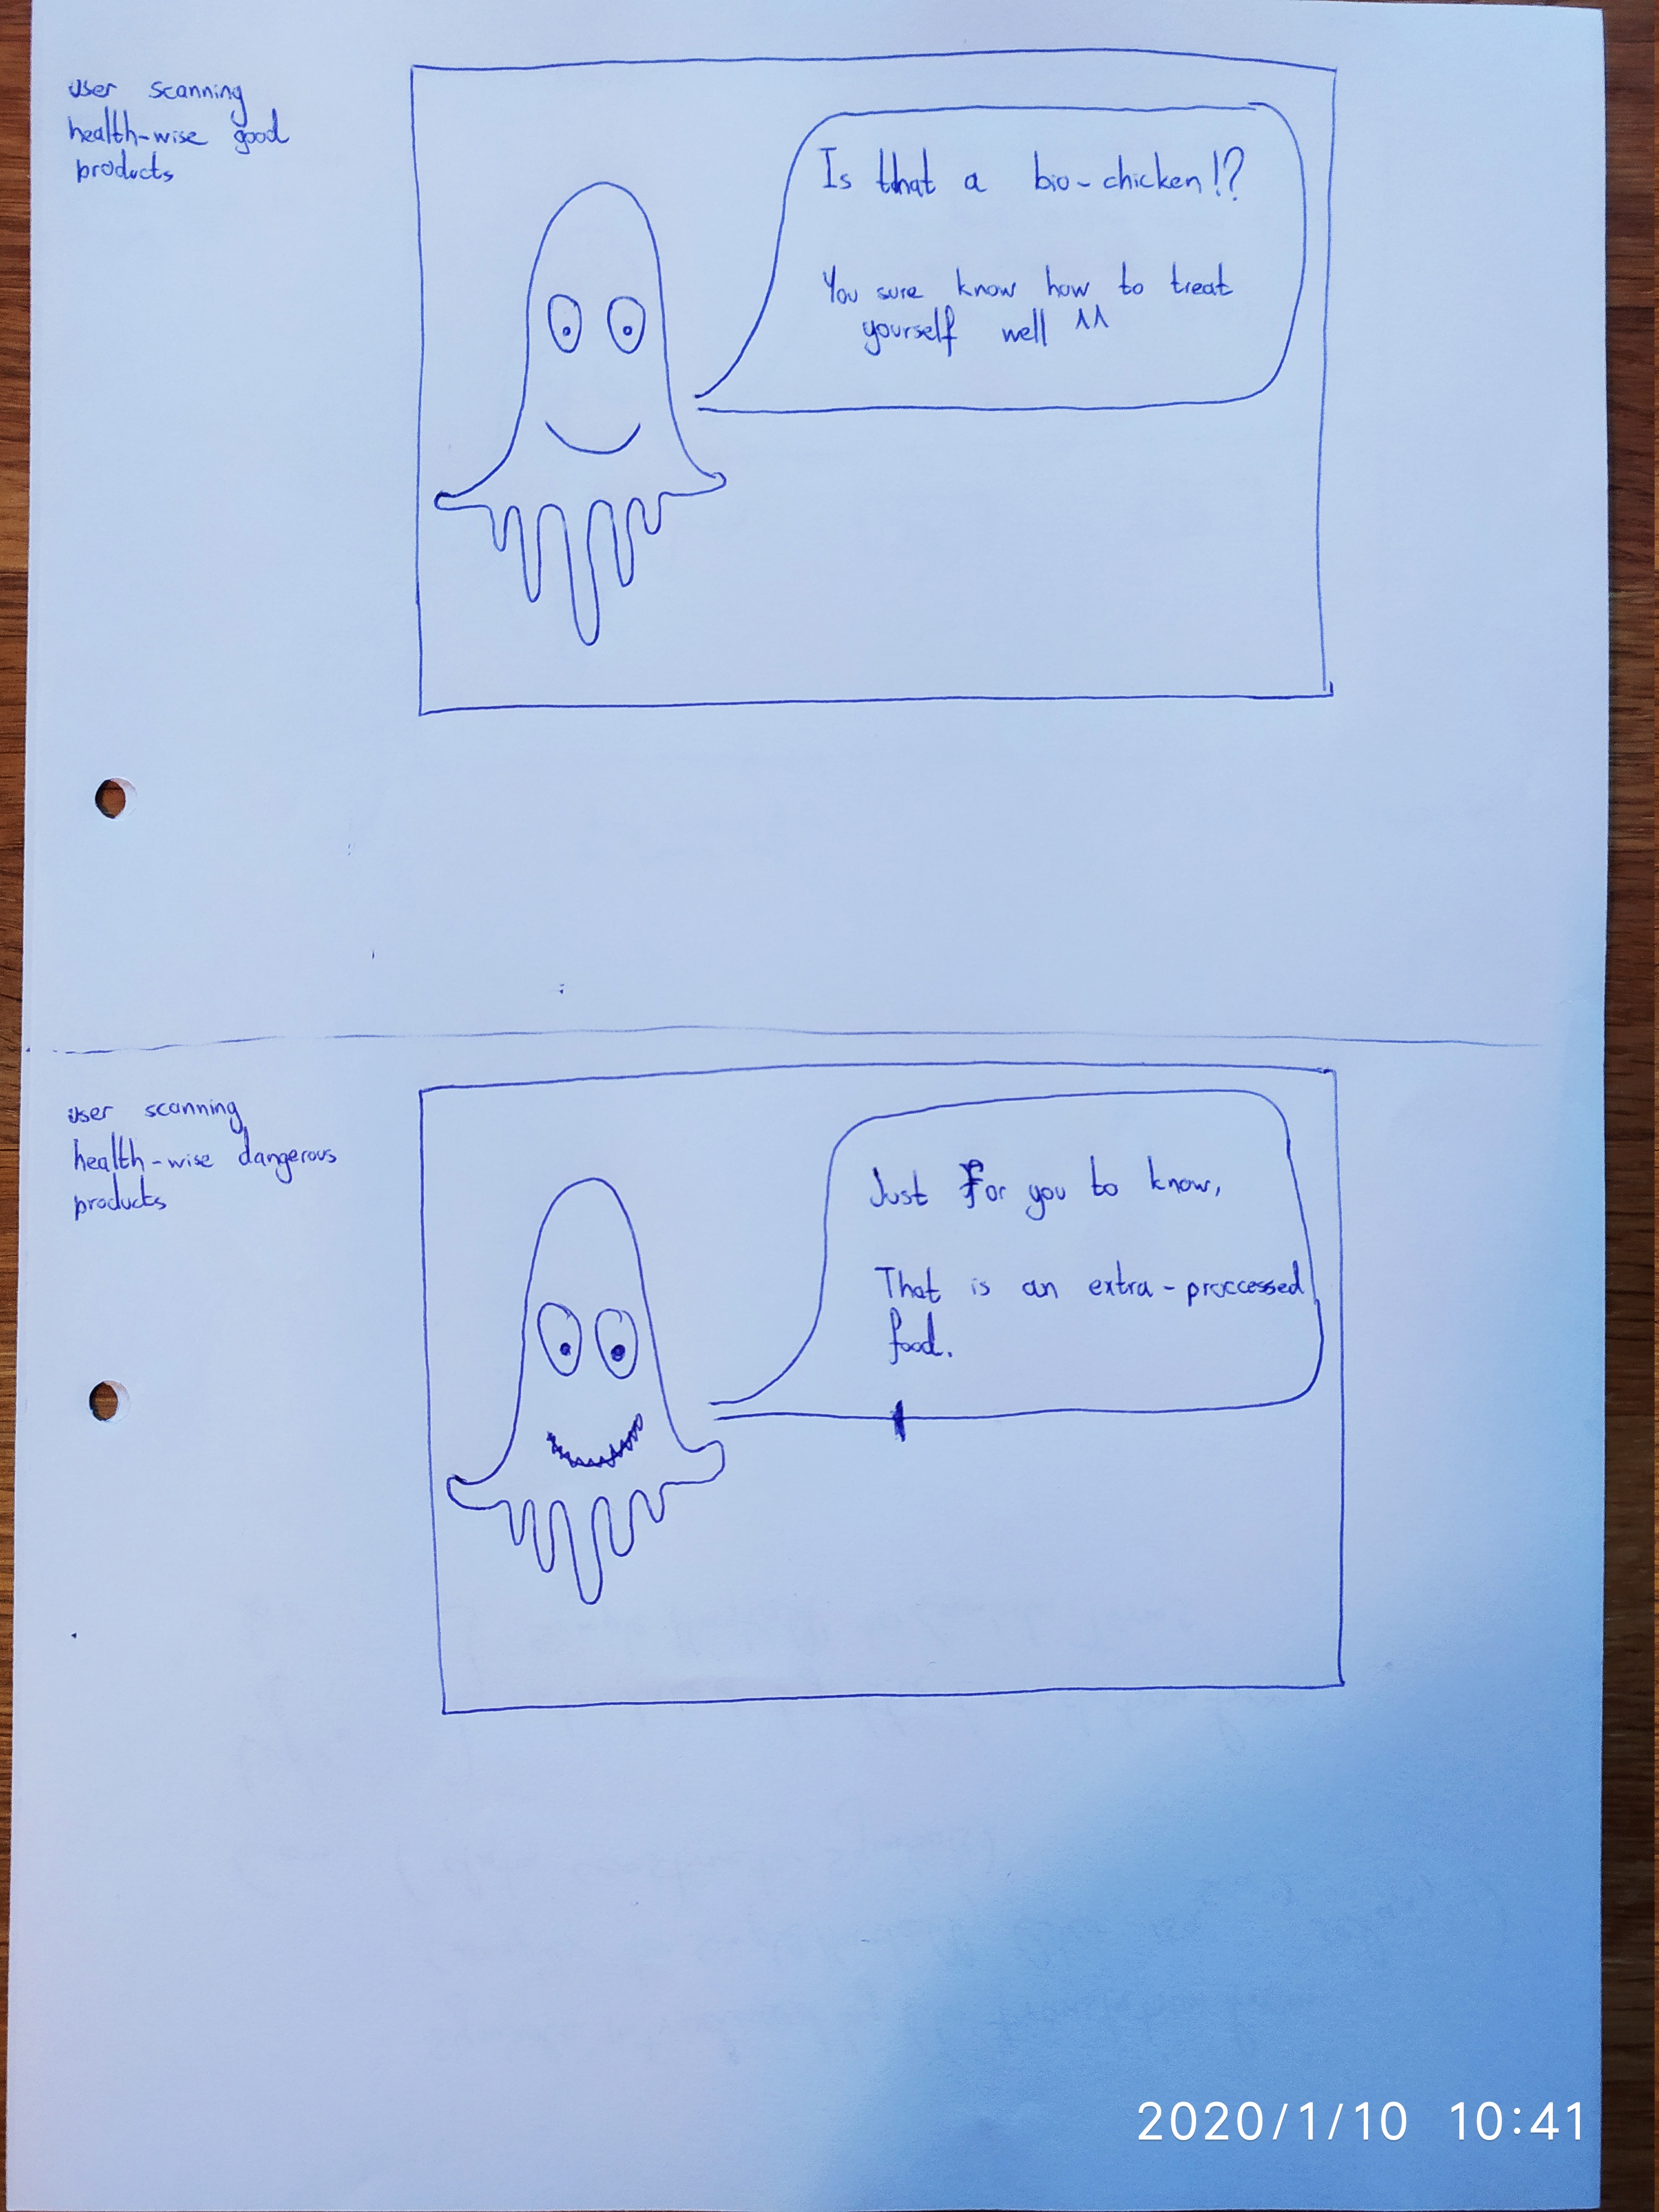 user scanning
health-wise good
products
Is that a bio-chicken!?
You sure know how to treat
yourself well ^^
user scanning
health-wise dangerous
products
Just For you to know,
That is an extra-proccessed
food.
2020/1/10 10:41